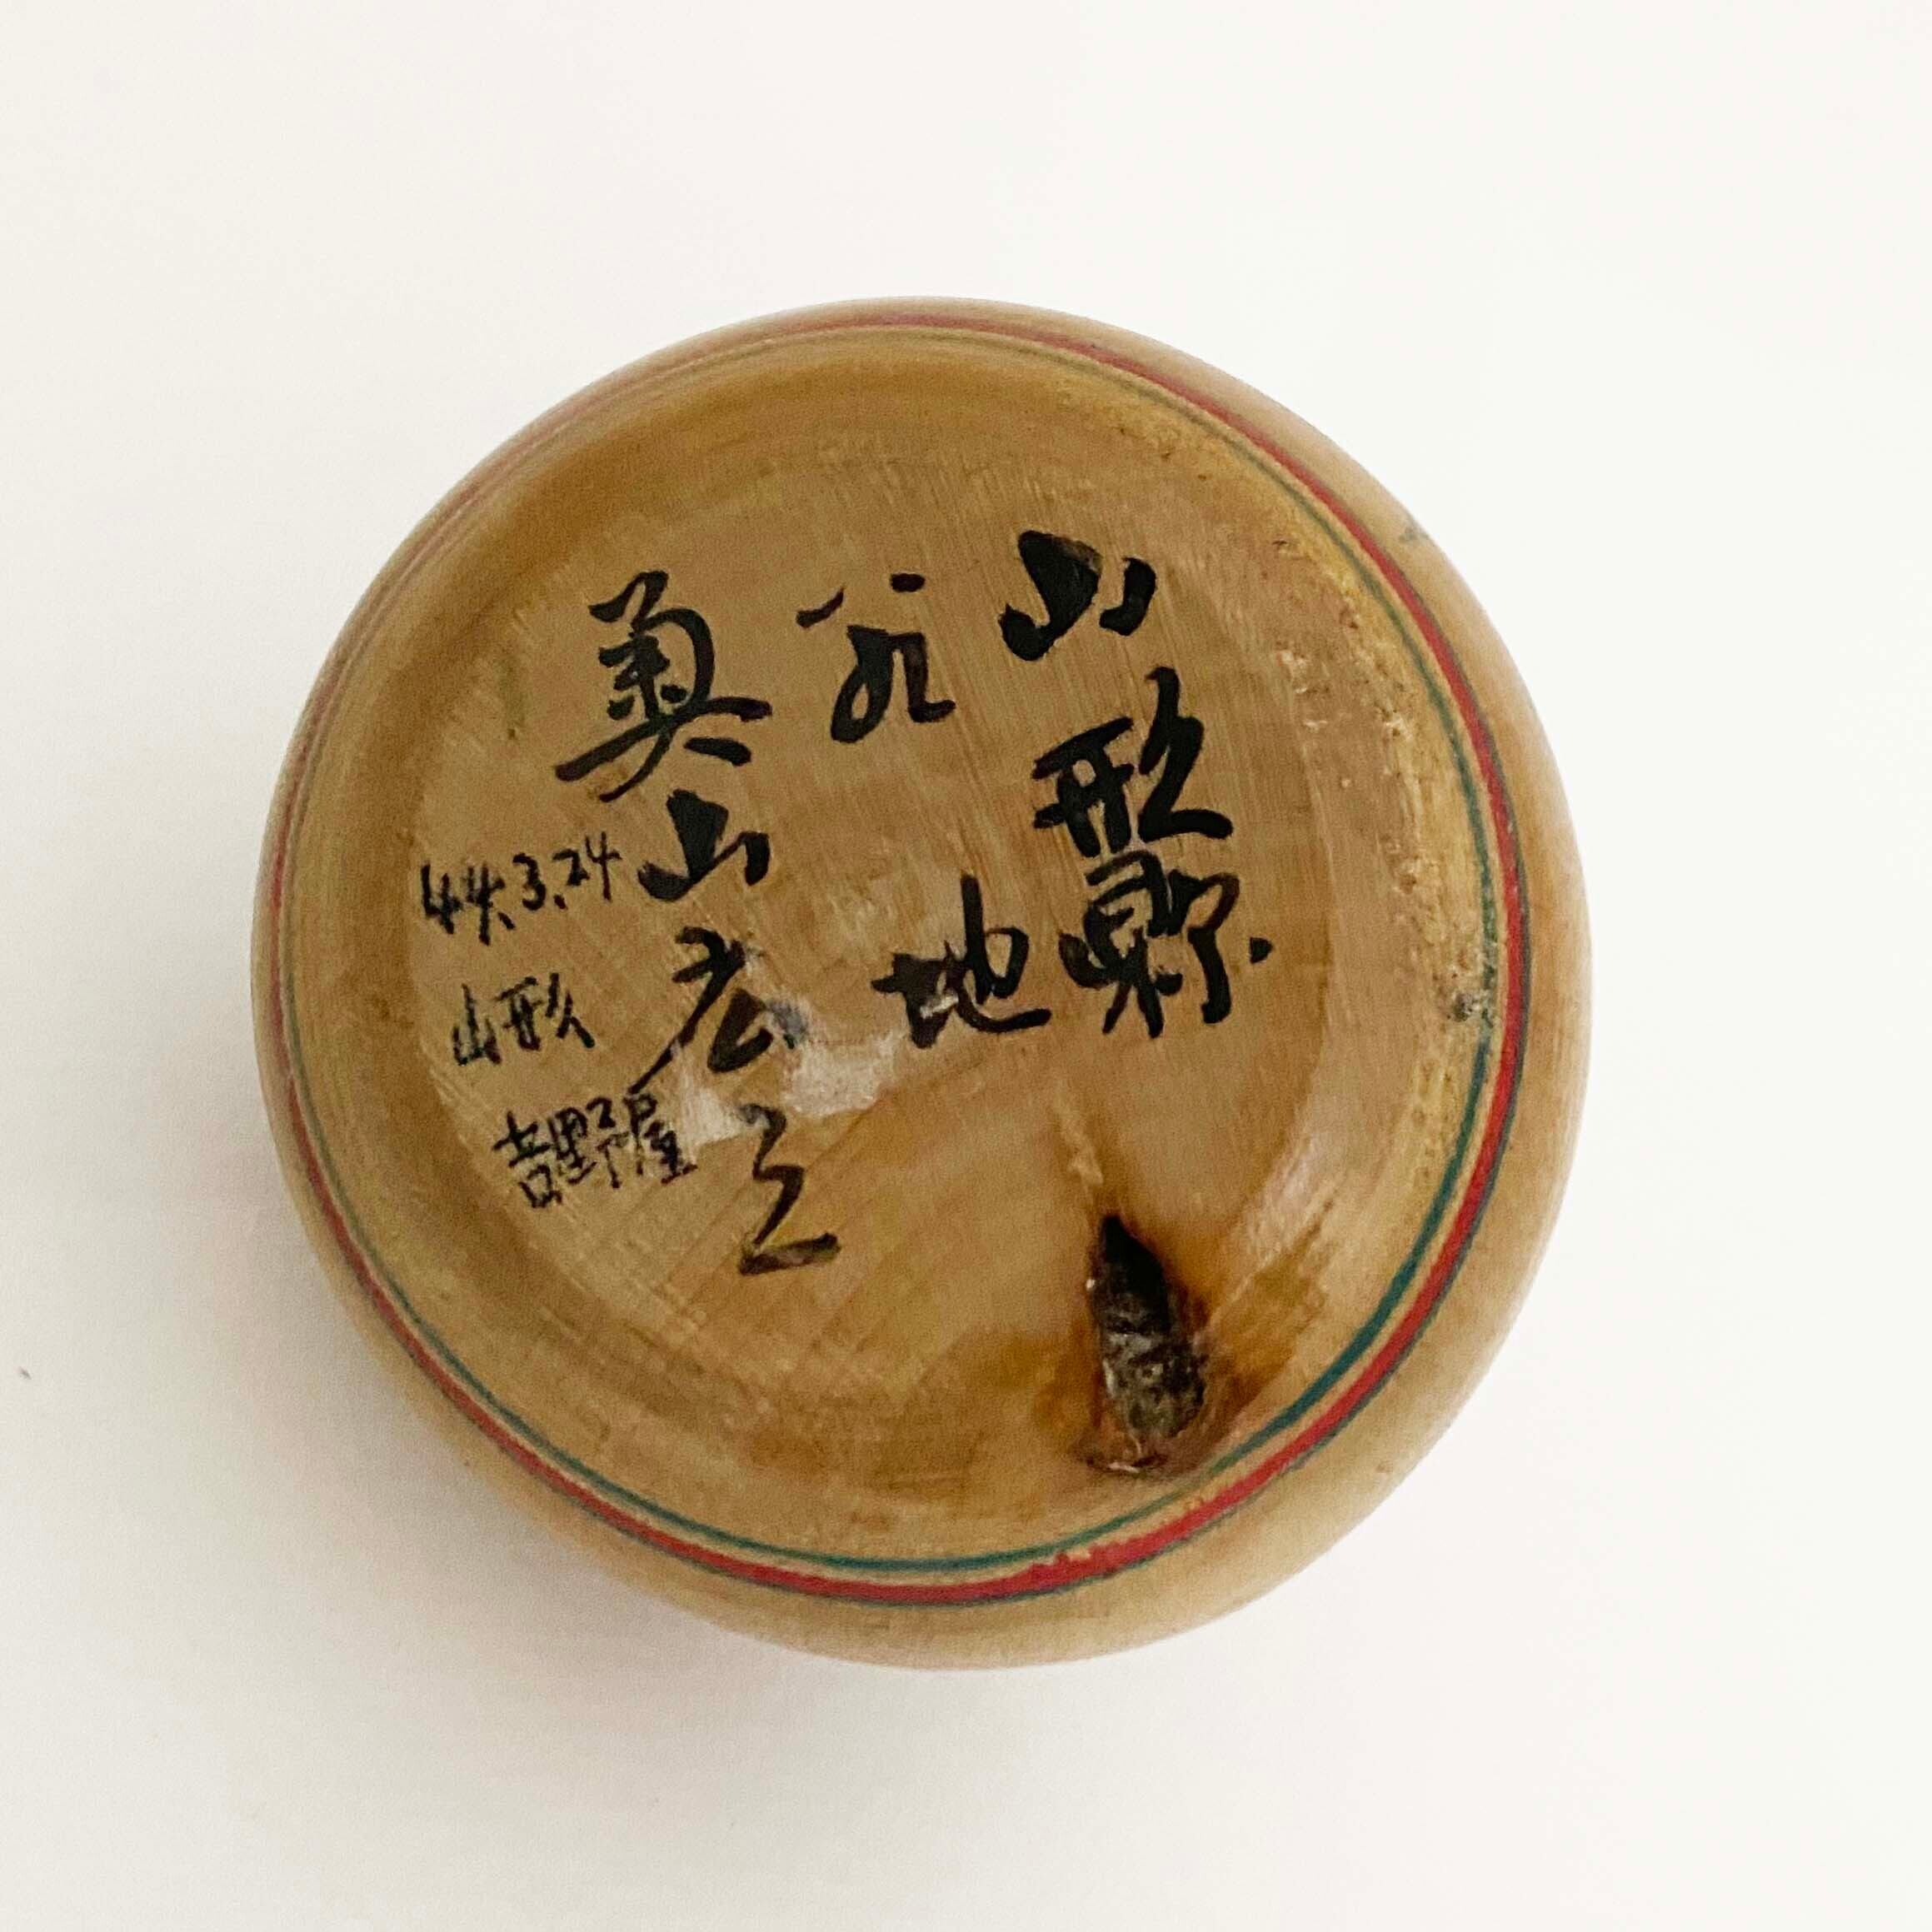 山形縣
地
奥山広三
44.3.24
山形
吉野屋